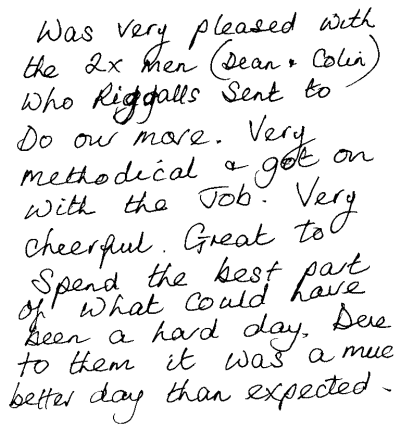 Was very pleased with
the 2x men (Dean & Colin)
who Riggalls sent to
Do our more. Very
methodical & got on
with the Job. Very
cheerful. Great to
Spend the best part
of what could have
been a hard day. Due
to them it was a muc
better day than expected.